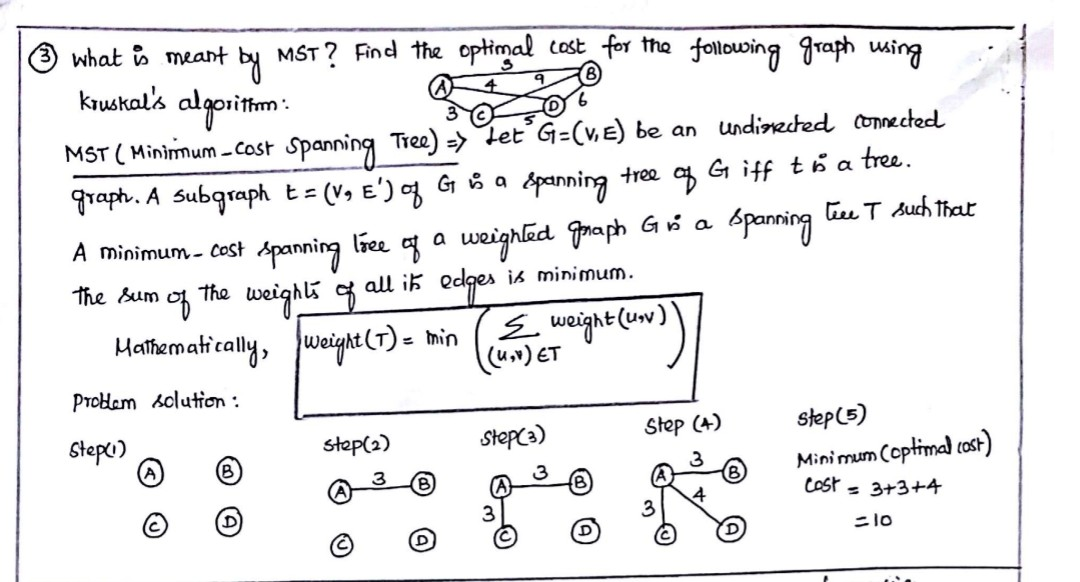 ③ what is meant by MST? Find the optimal cost for the following graph using
kruskal's algorithm:
3
A 4 9 B
3 C 5 D 6
MST (Minimum-cost Spanning Tree) => Let G=(V,E) be an undirected connected
graph. A subgraph t = (V, E') of G is a spanning tree of G iff t is a tree.
A minimum-cost spanning tree of a weighted graph G is a spanning tree T such that
the sum of the weights of all its edges is minimum.
Mathematically, weight(T) = min ( Σ weight(u,v) )
(u,v) ∈T
Problem solution:
Step(1) Step(2) Step(3) Step (4) Step(5)
A B A 3 B A 3 B A 3 B Minimum (optimal cost)
3 3 4 Cost = 3+3+4
C D C D C D C D = 10